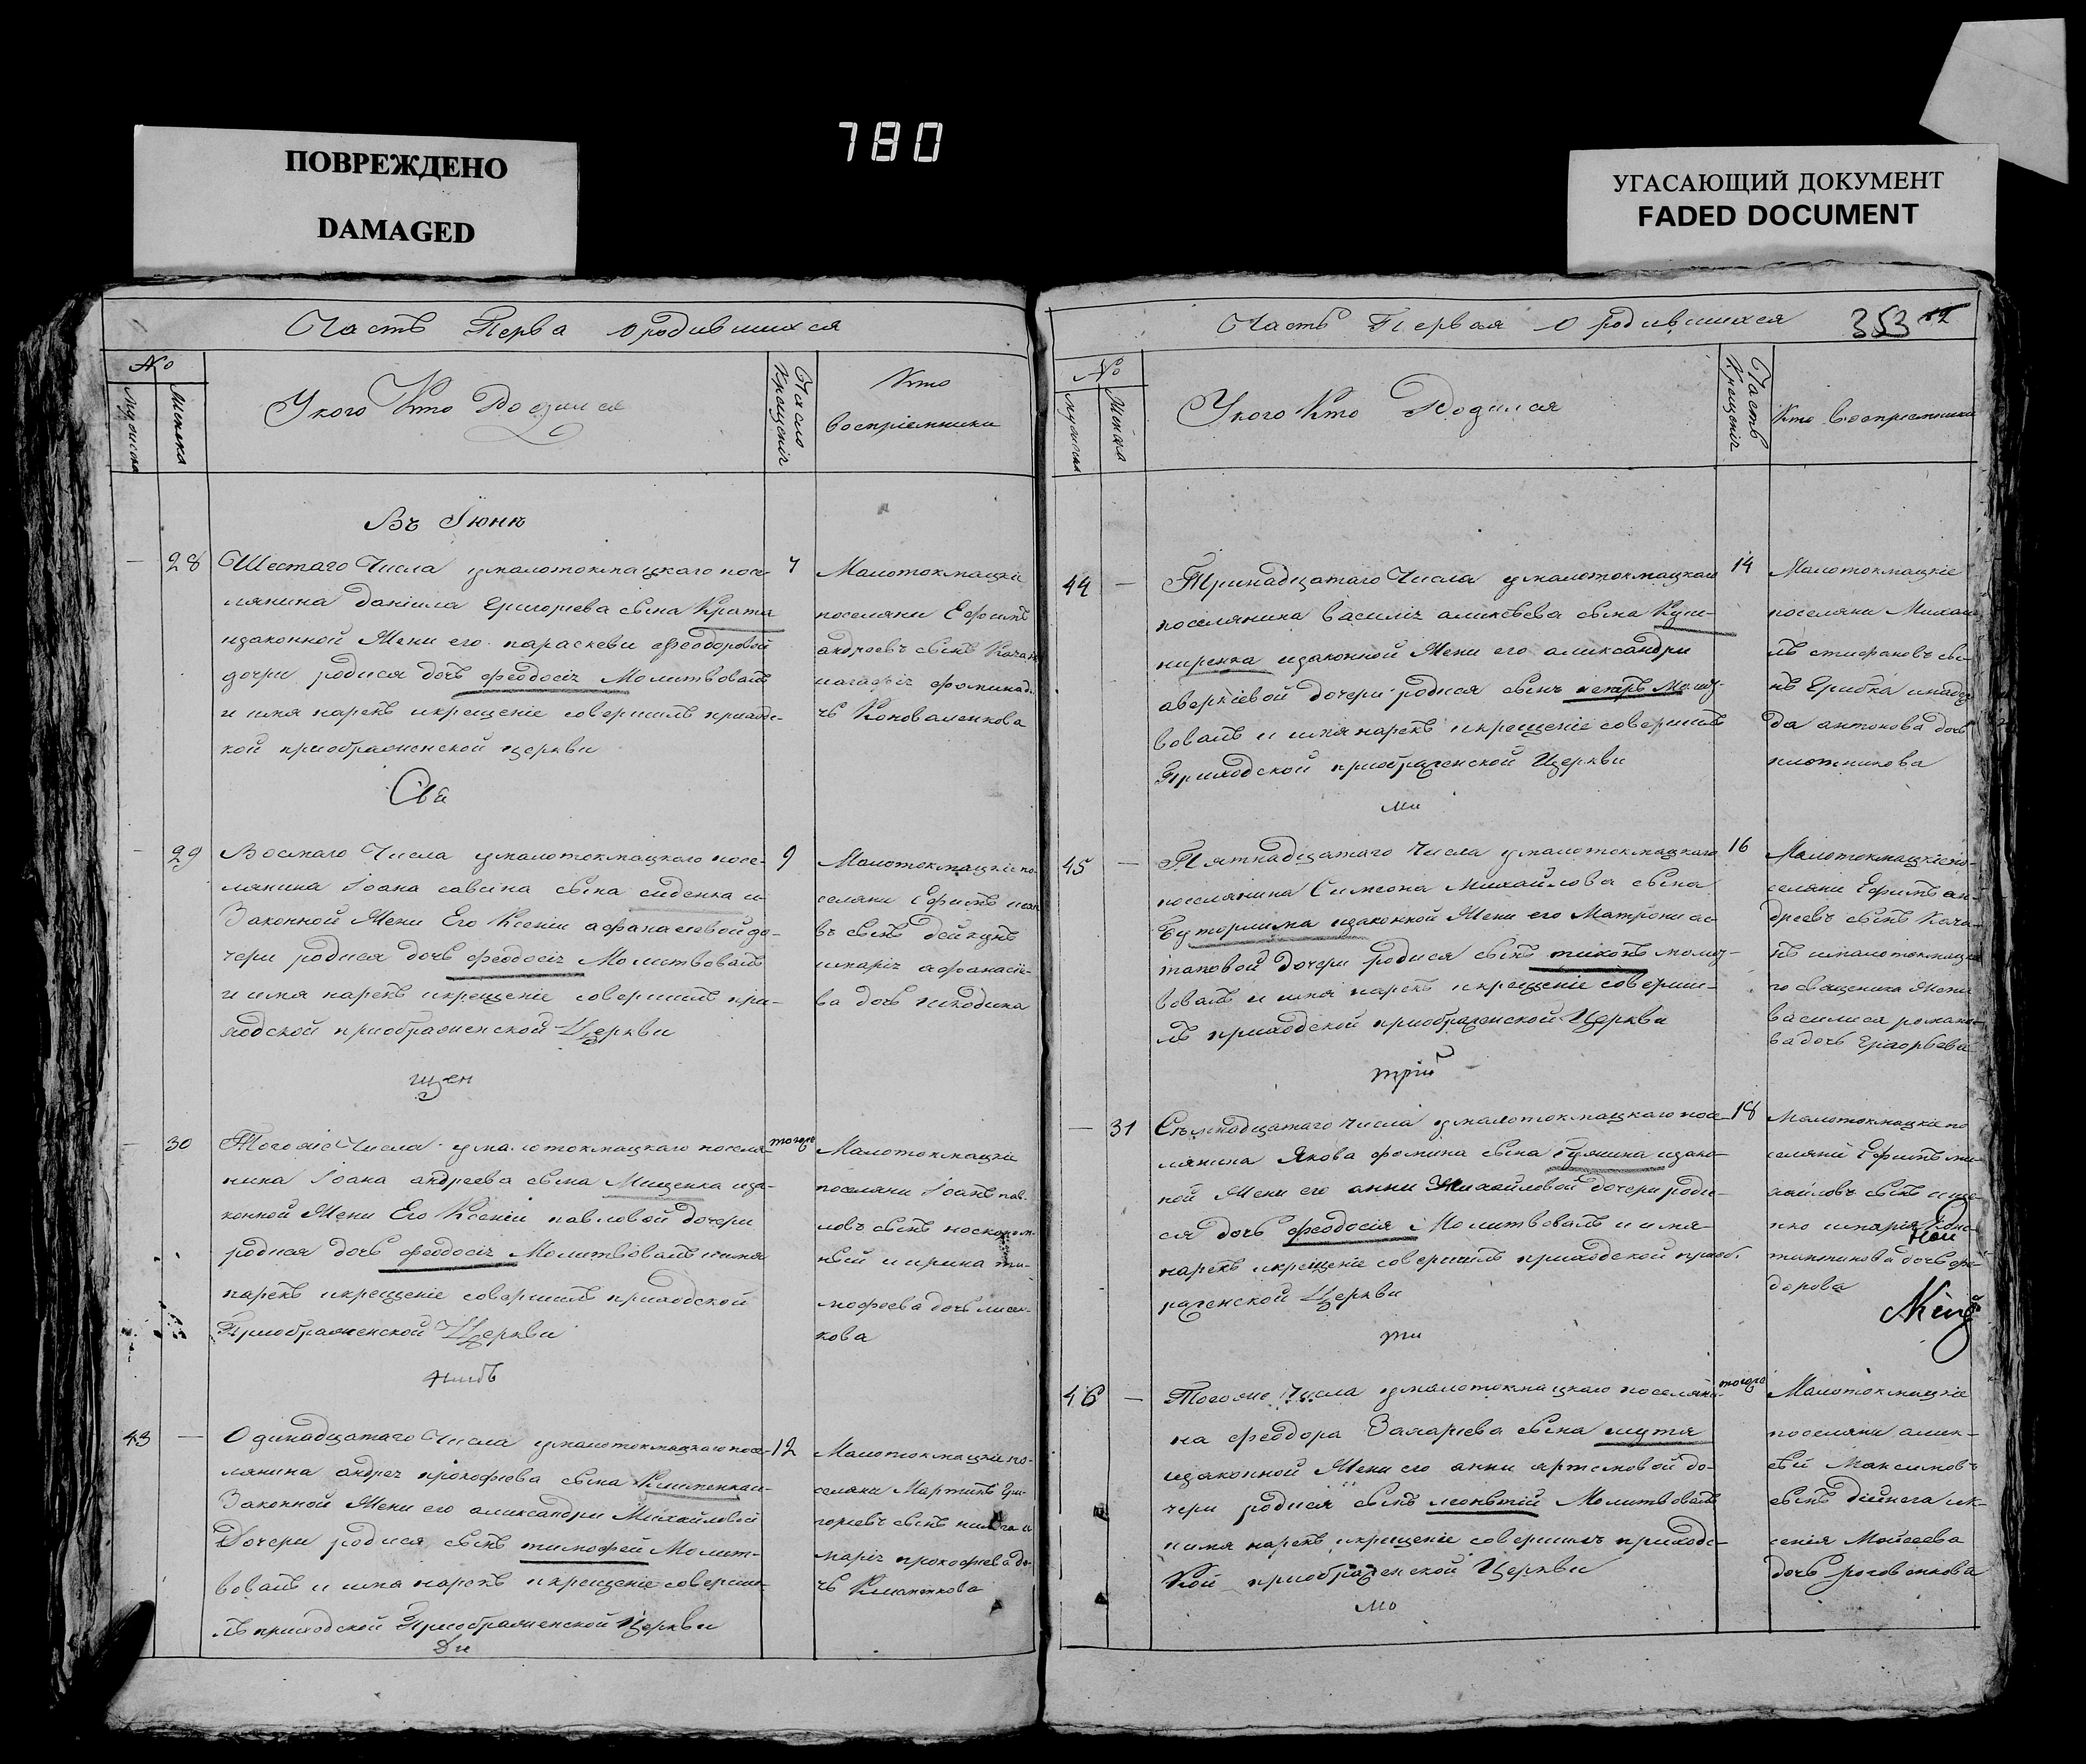 780
ПОВРЕЖДЕНО
DAMAGED
УГАСАЮЩИЙ ДОКУМЕНТ
FADED DOCUMENT
Часть Перва о родившихся
№
Мужеска
Женска
У кого Кто Родился
Число Крещенія
Кто
воспріемники
Въ Іюнѣ
28
Шестаго Числа у малотокмацкаго посе-
лянина даніила Григоріева сына Крата
изаконной Жены его параскеви Феодоровой
дочери родися дочь феодосія Молитвовалъ
и имя нарекъ и крещеніе совершилъ приходс-
кой приображенской церкви
7
Малотокмацкіе
поселяни Ефимъ
андреевъ сынъ
Коноваленкова
Свя
29
Восмаго Числа у малотокмацкаго посе-
лянина Іоана савина сына сиденка и
Законной Жены Его Ксеніи афанасіевой до-
чери родися дочь феодосія Молитвовалъ
и имя нарекъ и крещеніе совершилъ при-
ходской приображенской Церкви
9
Малотокмацкіе по-
селяни Ефимъ
въ сынъ дейкунъ
имарія афанасіе-
ва дочь
щен
30
Тогоже Числа у малотокмацкаго поселя-
нина Іоана андреева сына Мищенка иза-
конной Жены Его Ксеніи павловой дочери
родися дочь феодосія Молитвовалъ иимя
нарекъ икрещеніе совершилъ приходской
Приображенской Церкви
тогоже
Малотокмацкіе
поселяни Іоанъ пав-
ловъ сынъ
ный и ирина ти-
мофеева дочь лисен-
кова
никъ
43
Одинадцатаго Числа у малотокмацкаго посе-
лянина андрея прокофіева сына Клименка и
Законной Жены его александри Михайловой
Дочери родися сынъ тимофей Молит-
вовалъ и имя нарекъ и крещеніе соверши-
лъ приходской Приображенской Церкви
12
Малотокмацкіе по-
селяни Мартинъ Гри-
горіевъ сынъ
марія прокофіева до-
чь Клименкова
Ди
Часть Первая о родившихся
353
№
Мужеска
Женска
У кого Кто Родился
Крещенія
Кто воспріемники
44
Тринадцатаго Числа у малотокмацкаго
поселянина василія алексѣева сына Куш-
ниренка изаконной Жены его александри
аверкіевой дочери родися сынъ петръ Молит-
вовалъ и имя нарекъ икрещеніе совершилъ
Приходской приображенской Церкви
14
Малотокмацкіе
поселяни Михаи-
лъ стифановъ сы-
нъ Грибка инадеж-
да антонова дочь
плотникова
ми
45
Пятнадцатаго числа у малотокмацкаго
поселянина Симеона Михайлова сына
изаконной Жены его Матрони ас-
таповой дочери родися сынъ тихонъ молит-
вовалъ и имя нарекъ и крещеніе соверши-
лъ приходской приображенской Церкви
16
Малотокмацкіе по-
селяни Ефимъ ан-
дреевъ сынъ Кача-
нъ ималотокмацка-
го священика жена
василиса романо-
ва дочь Григорьева
трій
31
Семнадцатаго числа у малотокмацкаго посе-
лянина Якова фомина сына изако-
ной Жены его анни Михайловой дочери роди-
ся дочь феодосія Молитвовалъ и имя
нарекъ икрещеніе совершилъ приходской приоб-
раженской Церкви
18
Малотокмацкіе по
селяни Ефимъ ми-
хайловъ сынъ ище-
нко имарія Конс-
тантинова дочь фи-
дорова
ти
46
Тогоже Числа у малотокмацкаго поселяни-
на феодора Захаріева сына шутя
изаконной Жены его анни артемовой до-
чери родися сынъ леонтій Молитвовалъ
и имя нарекъ икрещеніе совершилъ приходс-
Кой приображенской Церкви
тогоже
Малотокмацкіе
поселяни алек-
сѣй Максимовъ
сынъ дійнега ик-
сенія Мойсеева
дочь роговенкова
мо